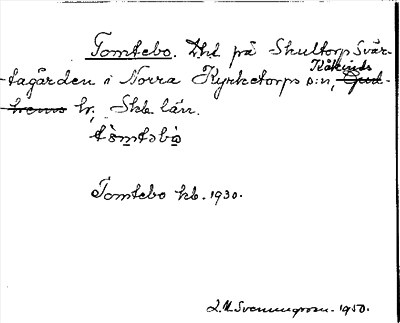 Tomtebo. Lht på Skultorp Svär-
Kåkinds
tagården i Norra Kyrketorps s:n, Gud-
hems hr, Skb. län.
tòmtəbò
Tomtebo kb. 1930.
1950.